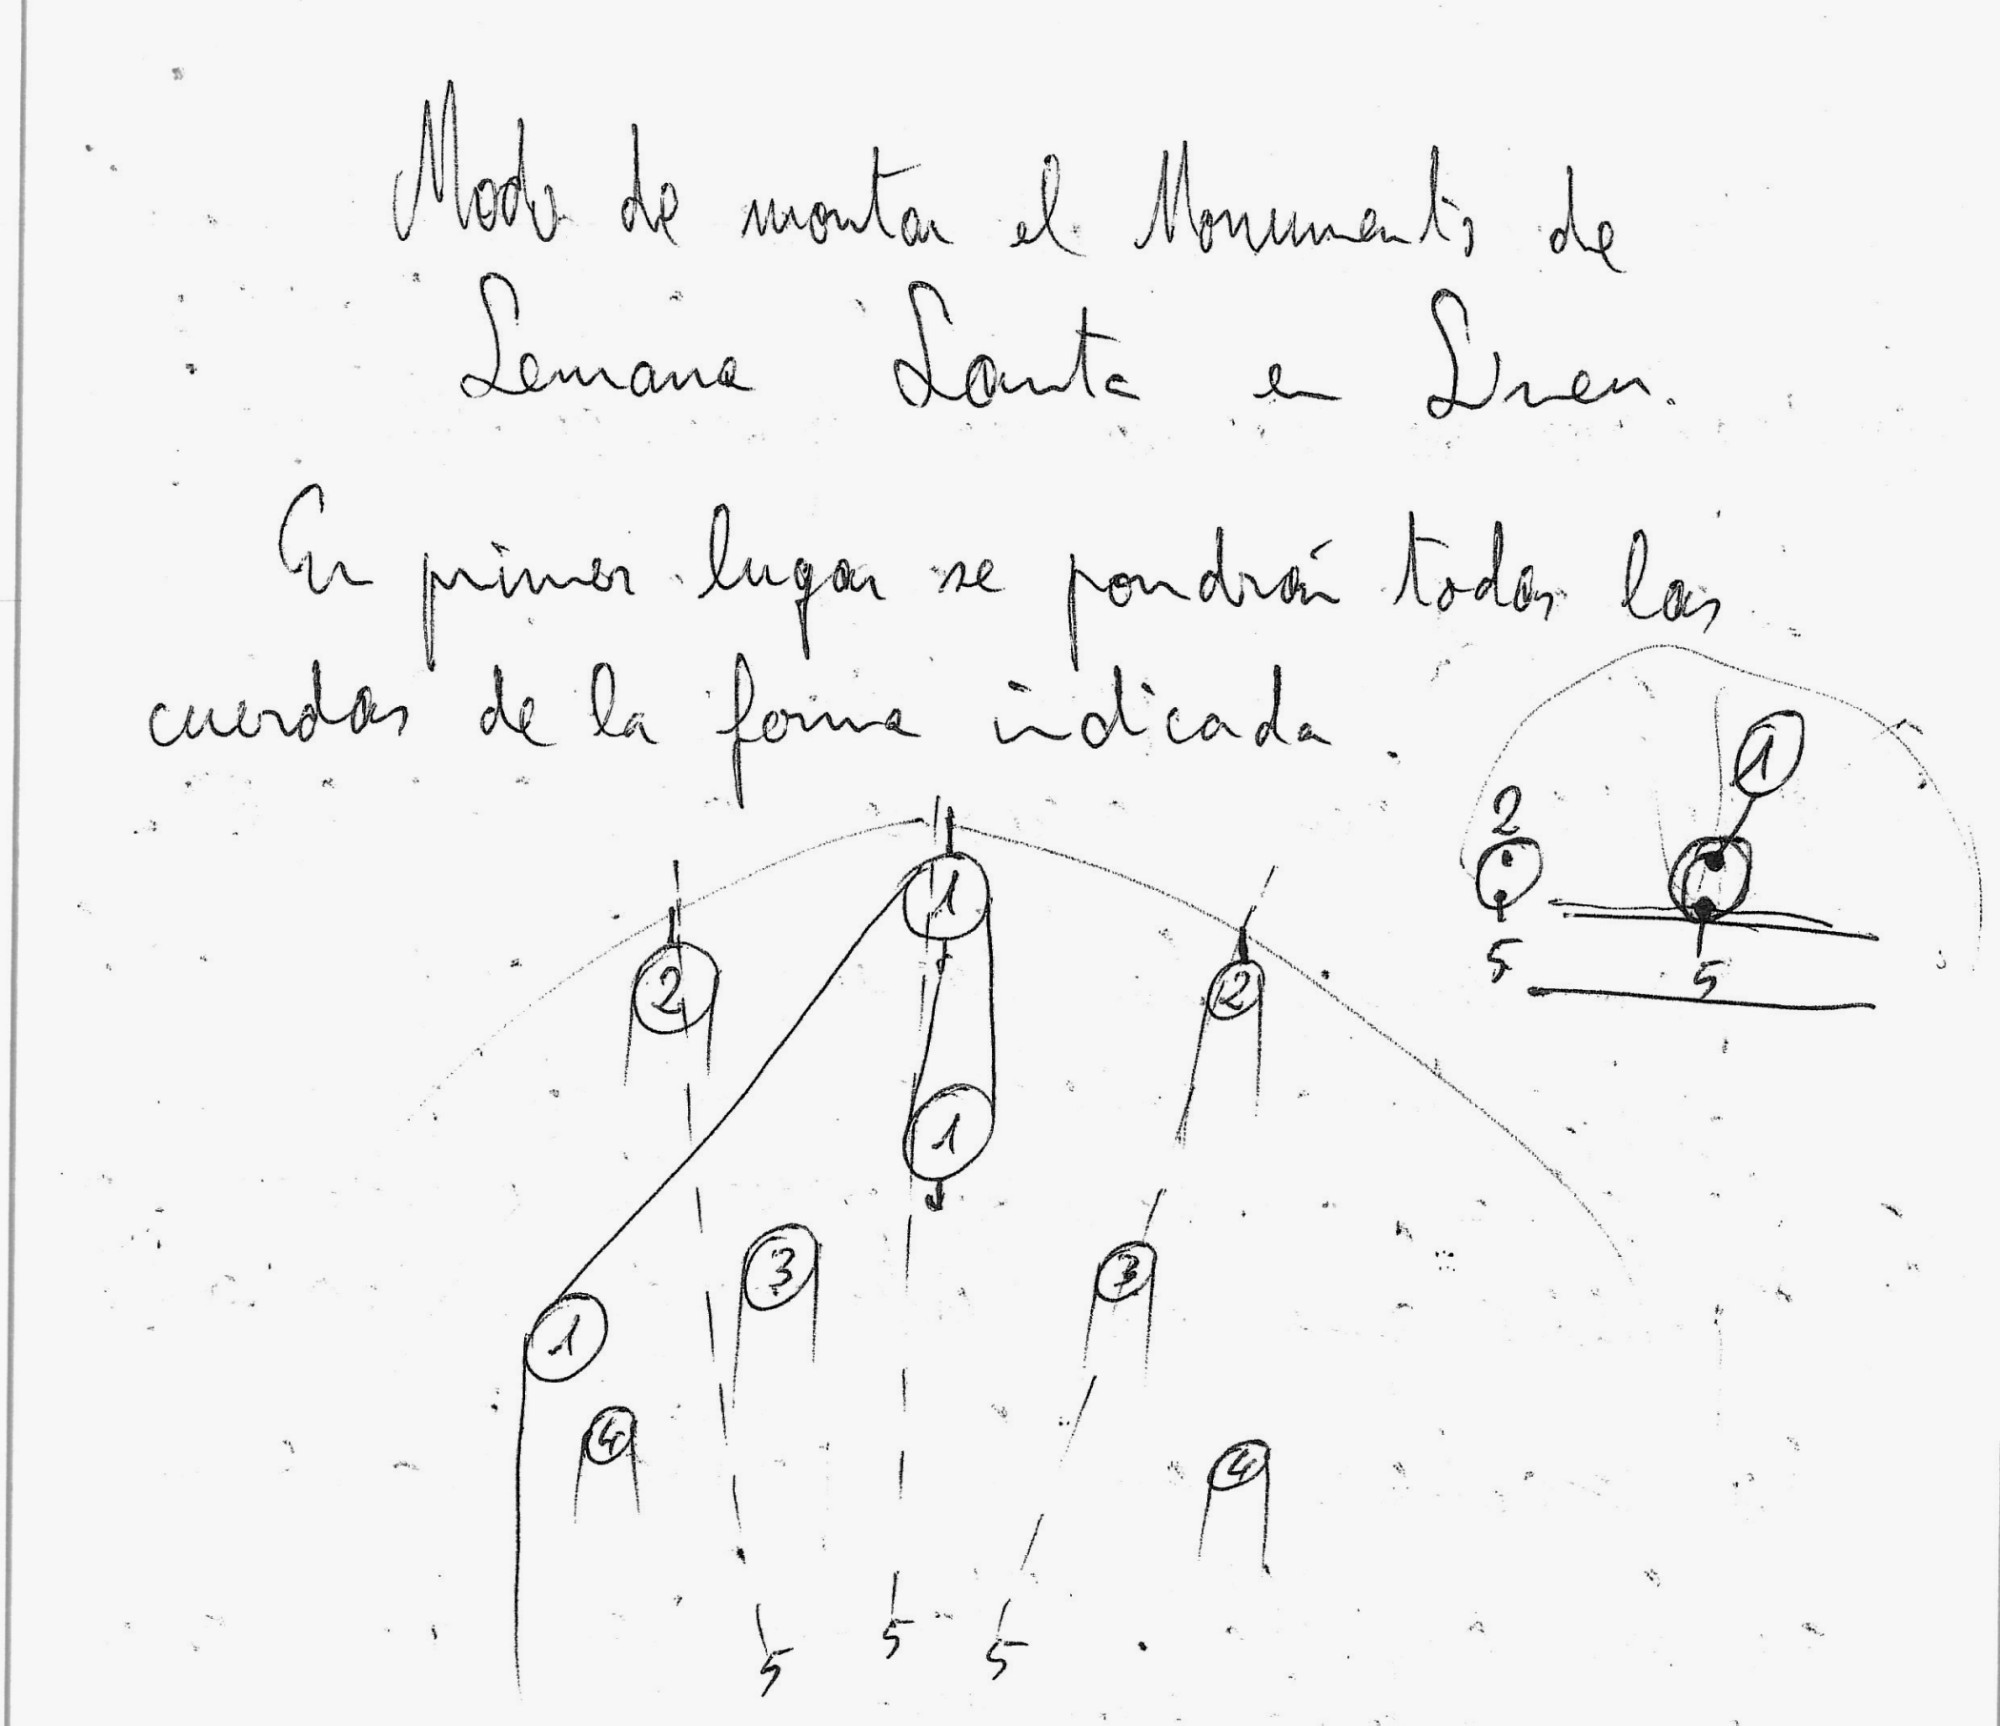 Modo de montar el Monumento de
Semana Santa en
En primer lugar se pondrán todas las
cuerdas de la forma indicada.
1
2
5
5
1
2
2
1
3
3
1
4
4
5
5
5